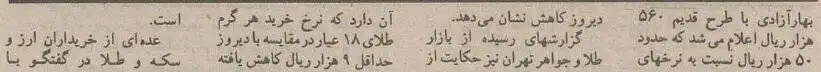 بهارآزادی با طرح قدیم ۵۶۰
هزار ریال اعلام می‌شد که حدود
۵۰ هزار ریال نسبت به نرخهای
دیروز کاهش نشان می‌دهد.
گزارشهای رسیده از بازار
طلا و جواهر تهران نیز حکایت از
آن دارد که نرخ خرید هر گرم
طلای ۱۸ عیار در مقایسه با دیروز
حداقل ۹ هزار ریال کاهش یافته
است.
عده‌ای از خریداران ارز و
سکه و طلا در گفتگو با